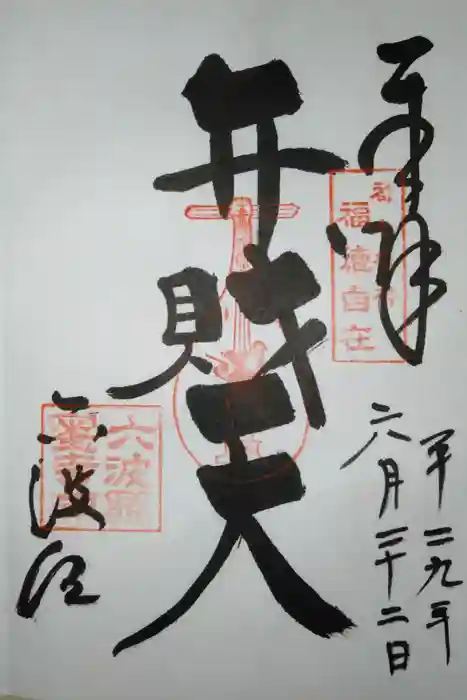 奉拝
福徳自在
平二九年
六月二十二日
弁財天
六波羅
六波羅